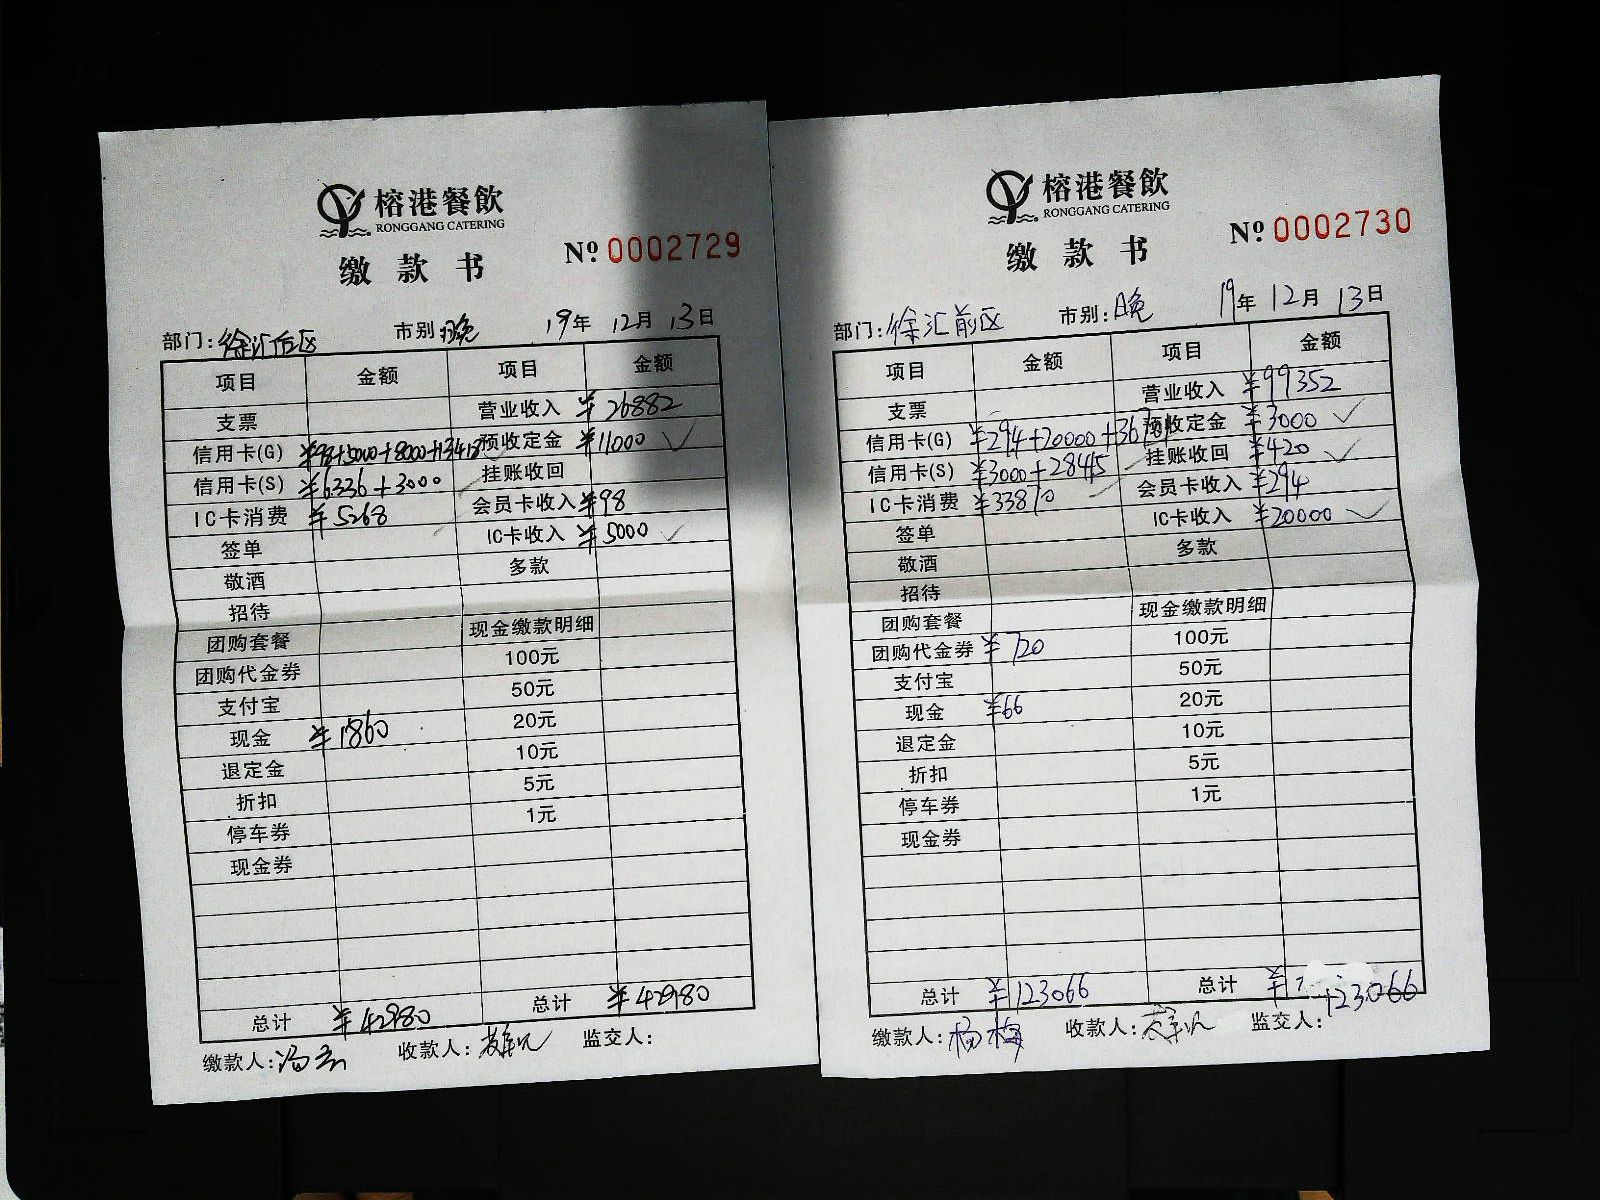 榕港餐飲
RONGGANG CATERING
缴款书
№ 0002729
部门:徐汇后区 市别:晚 19年 12月 13日
项目 金额 项目 金额
支票 营业收入 ¥26882
信用卡(G) ¥98+5000+8000+13418 预收定金 ¥11000 ✓
信用卡(S) ¥6336+3000 挂账收回
IC卡消费 ¥5268 会员卡收入 ¥98
签单 IC卡收入 ¥5000 ✓
敬酒 多款
招待
团购套餐 现金缴款明细
团购代金券 100元
支付宝 50元
现金 ¥1860 20元
退定金 10元
折扣 5元
停车券 1元
现金券
总计 ¥42980 总计 ¥42980
缴款人: 收款人: 监交人:
榕港餐飲
RONGGANG CATERING
缴款书
№ 0002730
部门:徐汇前区 市别:晚 19年 12月 13日
项目 金额 项目 金额
支票 营业收入 ¥99352
信用卡(G) ¥294+20000+36701 预收定金 ¥3000 ✓
信用卡(S) ¥3000+28415 挂账收回 ¥420 ✓
IC卡消费 ¥33870 会员卡收入 ¥294
签单 IC卡收入 ¥20000 ✓
敬酒 多款
招待
团购套餐 现金缴款明细
团购代金券 ¥720 100元
支付宝 50元
现金 ¥66 20元
退定金 10元
折扣 5元
停车券 1元
现金券
总计 ¥123066 总计 ¥123066
缴款人:杨梅 收款人: 监交人: